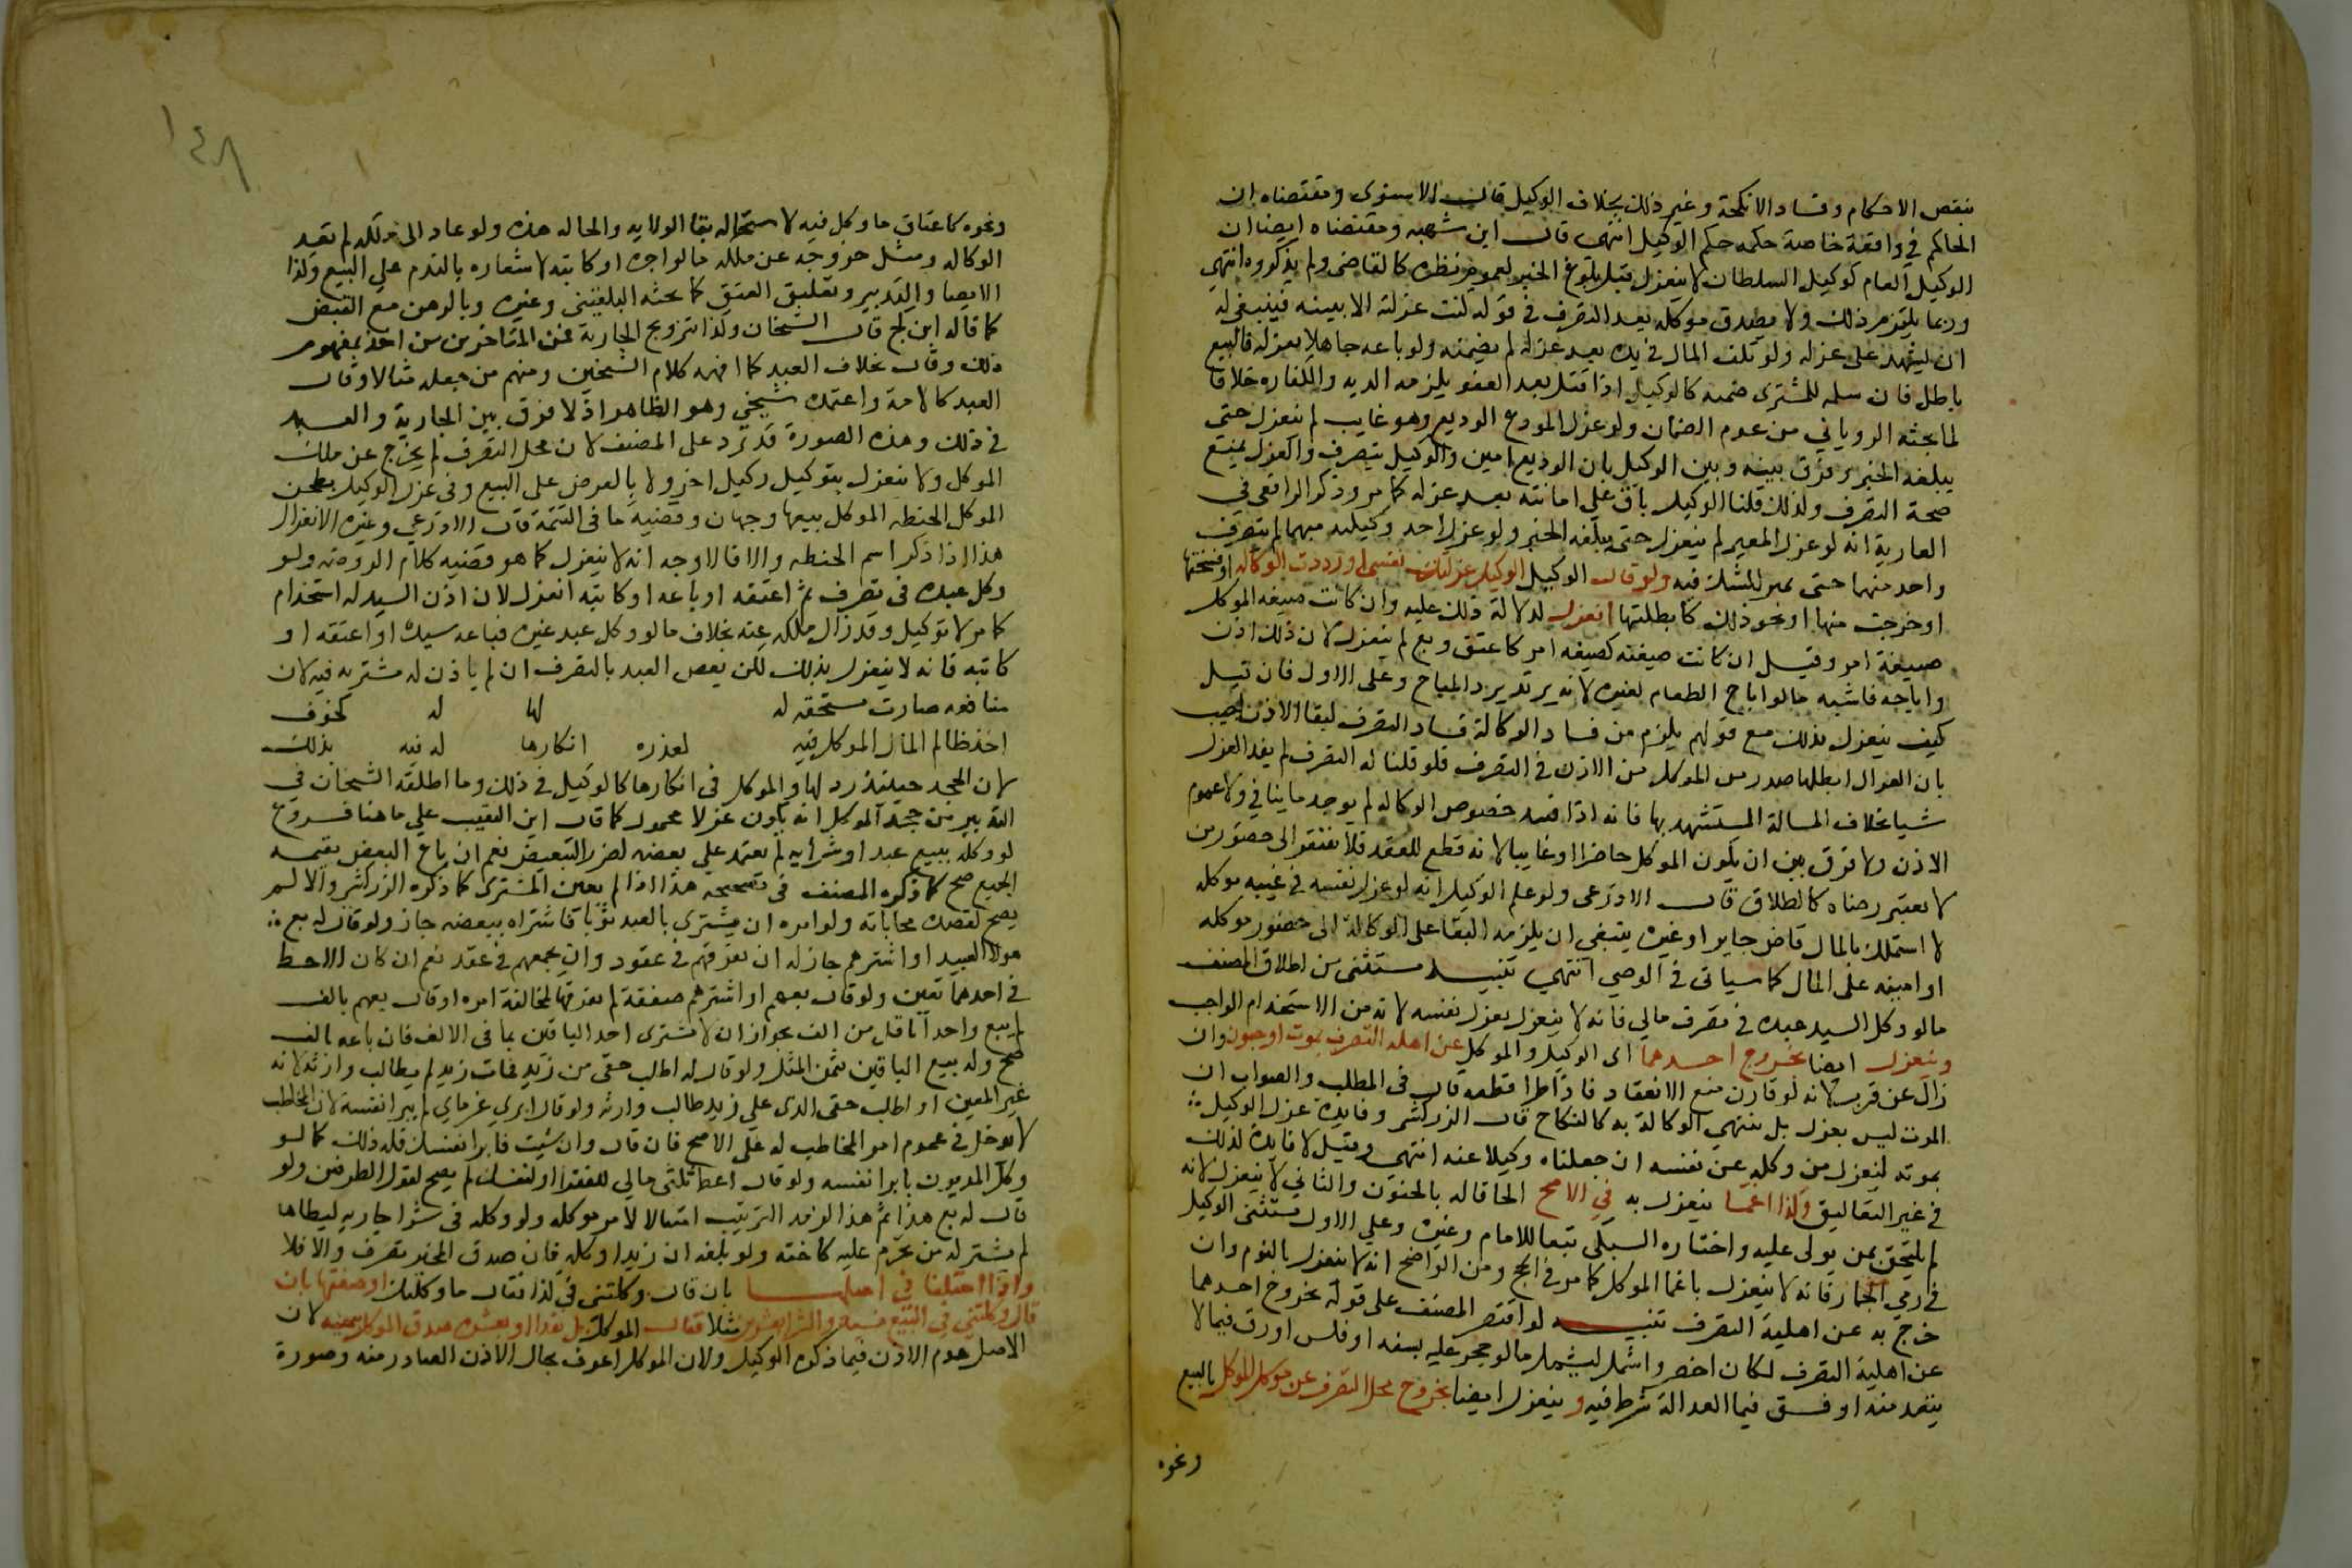 بنقض الاحكام وفساد الانكحة وغير ذلك بخلاف الوكيل قال الاسنوي ومقتضاه ان
الحاكم في واقعة خاصة حكمه حكم الوكيل انتهى قال ابن شهبه ومقتضاه ايضا ان
الوكيل العام كوكيل السلطان لا ينعزل قبل بلوغ الخبر لعموم نظره كالقاضي ولم يذكروه انتهي
وربما يلتزم ذلك ولا يصدق موكله بعد التصرف في قوله كنت عزلته الا ببينه فينبغي له
ان يشهد على عزله ولو تلف المال في يده بعد عزله لم يضمنه ولو باعه جاهلا بعزله فالبيع
باطل فان سلمه للمشتري ضمنه كالوكيل اذا قتل بعد العفو يلزمه الديه والكفاره خلافا
لما بحثه الروياني من عدم الضمان ولو عزل المودع الوديع وهو غايب لم ينعزل حتى
يبلغه الخبر وفرق بينه وبين الوكيل بان الوديع امين والوكيل يتصرف والعزل يمنع
صحة التصرف ولذلك قلنا الوكيل باق علي امانته بعد عزله كما مر وذكر الرافعي في
العارية انه لو عزل المعير لم ينعزل حتى يبلغه الخبر ولو عزل احد وكيليه مبهما لم يتصرف
واحد منهما حتى يميز للشك فيه ولو قال الوكيل الوكيل عزلت نفسي او رددت الوكاله او فسختها
او خرجت منها او نحو ذلك كابطلتها انعزل لدلالة ذلك عليه وان كانت صيغه الموكل
صيغة امر وقيل ان كانت صيغته كصيغه امر كاعتق وبع لم ينعزل لان ذلك اذن
واباحه فاشبه مالو اباح الطعام لغيره لانه يرتد برد المباح وعلى الاول فان قيل
كيف ينعزل بذلك مع قولهم يلزم من فساد الوكالة فساد التصرف لبقا الاذن اجيب
بان العزل ابطل ما صدر من الموكل من الاذن في التصرف فلو قلنا له التصرف لم يفد العزل
شيا بخلاف المسالة المستشهد بها فانه اذا فسد خصوص الوكاله لم يوجد ما ينافي ولا عموم
الاذن ولا فرق بين ان يكون الموكل حاضرا او غايبا لانه قطع للعقد فلا يفتقر الى حضور من
لا يعتبر رضاه كالطلاق قال الاذرعي ولو علم الوكيل انه لو عزل نفسه في غيبه موكله
لا استملك بالمال قاض جاير او غيره ينبغي ان يلزمه البقا على الوكالة الى حضور موكله
او امينه على المال كما سياتي في الوصي انتهي تنبيه يستثنى من اطلاق المصنف
مالو وكل السيد عبده في تصرف مالي فانه لا ينعزل بعزل نفسه لانه من الاستخدام الواجب
وينعزل ايضا بخروج احدهما اى الوكيل والموكل عن اهليه التصرف بموت او جنون وان
زال عن قرب لانه لو قارن منع الانعقاد فاذا طرا قطعه قال في المطلب والصواب ان
الموت ليس بعزل بل تنتهي الوكالة به كالنكاح قال الزركشي وفايدة عزل الوكيل
بموته لينعزل من وكله عن نفسه ان جعلناه وكيلا عنه انتهي وقيل لا فايدة لذلك
في غير التعاليق وكذا اغما ينعزل به في الاصح الحاقا له بالجنون والثاني لا ينعزل لانه
لم يلتحق بمن يولى عليه واختاره السبكي تبعا للامام وغيره وعلي الاول يستثنى الوكيل
في رمي الجمار فانه لا ينعزل باغما الموكل كما مر في الحج ومن الواضح انه لا ينعزل بالنوم وان
خرج به عن اهلية التصرف تنبيه لو اقتصر المصنف على قوله بخروج احدهما
عن اهلية التصرف لكان اخصر واشمل ليشمل مالو حجر عليه بسفه او فلس او رق فيما لا
ينفذ منه او فسق فيما العدالة شرط فيه وينعزل ايضا بخروج محل التصرف عن ملك الموكل بالبيع
ونحوه
١٤٨
ونحوه كاعتاق ما وكل فيه لاستحاله بقا الولايه والحاله هذه ولو عاد الى ملكه لم تعد
الوكاله ومثل خروجه عن ملكه مالو اجره او كاتبه لاشعاره بالندم علي البيع وكذا
الايصا والتدبير وتعليق العتق كما بحثه البلقيني وغيره وبالرهن مع القبض
كما قاله ابن كج قال الشيخان وكذا تزويج الجارية فمن المتاخرين من اخذ بمفهوم
ذلك وقال بخلاف العبد كما افهمه كلام الشيخين ومنهم من جعله مثالا وقال
العبد كالامة واعتمده شيخي وهو الظاهر اذ لا فرق بين الجارية والعبد
في ذلك وهذه الصورة قد ترد على المصنف لان محل التصرف لم يخرج عن ملك
الموكل ولا ينعزل بتوكيل وكيل اخر ولا بالعرض على البيع وفي عزل الوكيل بطحن
الموكل الحنطه الموكل ببيعها وجهان وقضيه ما في التتمة قال الاذرعي وغيره الانعزال
هذا اذا ذكر اسم الحنطه والا فالاوجه انه لا ينعزل كما هو قضيه كلام الروضه ولو
وكل عبده في تصرف ثم اعتقه او باعه او كاتبه انعزل لان اذن السيد له استخدام
كما مر لا توكيل وقد زال ملكه عنه بخلاف مالو وكل عبد غيره فباعه سيده او اعتقه او
كاتبه فانه لا ينعزل بذلك لكن يعصي العبد بالتصرف ان لم ياذن له مشتريه فيه لان
منافعه صارت مستحقه له لها له كخوف
اخذ ظالم المال الموكل فيه لعذره انكارها له فيه بذلك
لان الجحد حينئذ رد لها والموكل في انكارها كالوكيل في ذلك وما اطلقه الشيخان في
التدبير من جحد الموكل انه يكون عزلا محمول كما قال ابن النقيب علي ما هنا فروع
لو وكله ببيع عبد او شرايه لم يعقد علي بعضه لضرر التبعيض نعم ان باع البعض بقيمه
الجميع صح كما ذكره المصنف في تصحيحه هذا اذا لم يعين المشتري كما ذكره الزركشي والا لم
يصح لقصد محاباته ولو امره ان يشتري بالعبد ثوبا فاشتراه ببعضه جاز ولو قال له بع
هولا العبيد او اشترهم جاز له ان يفرقهم في عقود وان يجمعهم في عقد نعم ان كان الاحظ
في احدهما تعين ولو قال بعهم او اشترهم صفقة لم يفرقها لمخالفة امره او قال بعهم بالف
لم يبع واحدا باقل من الف بجواز ان لا يشتري احد الباقين بما في الالف فان باعه بالف
صح وله بيع الباقين بثمن المثل ولو قال له اطلب حقي من زيد فمات زيد لم يطالب وارثه لانه
غير المعين او اطلب حقي الذي علي زيد طالب وارثه ولو قال ابري غرماي لم يبرا نفسه لان المخاطب
لا يدخل في عموم امر المخاطب له على الاصح فان قال وان شيت فابرا نفسك فله ذلك كما لو
وكل المديون بابرا نفسه ولو قال اعط ثلثي مالي للفقرا او لنفسك لم يصح لتولي الطرفين ولو
قال له بع هذا ثم هذا لزمه الترتيب امتثالا لامر موكله ولو وكله في شرا جاريه ليطاها
لم يشتر له من يحرم عليه كاخته ولو بلغه ان زيدا وكله فان صدق المخبر تصرف والا فلا
واذا اختلفا في اصلها بان قال وكلتني في كذا فقال ما وكلتك او صفتها بان
قال وكلتني في البيع نسيه والشرا بعشرين مثلا فقال الموكل بل نقدا او بعشره صدق الموكل بيمينه لان
الاصل عدم الاذن فيما ذكره الوكيل ولان الموكل اعرف بحال الاذن الصادر منه وصورة